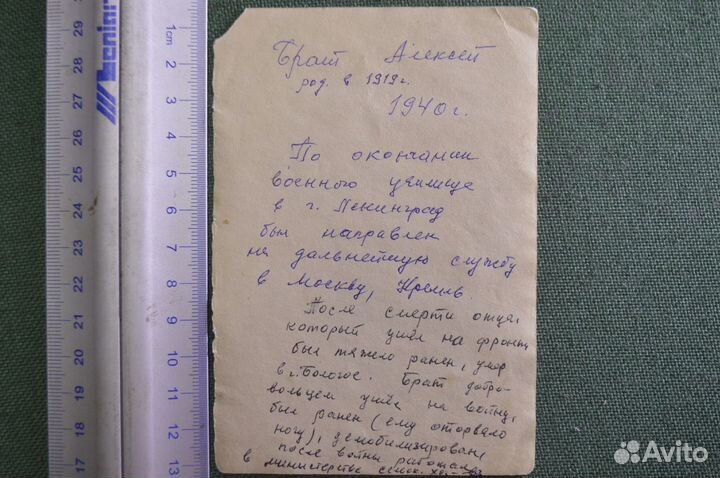 Брат Алексей
род. в 1919 г.
1940 г.
По окончании
военного училища
в г. Ленинград
был направлен
на дальнейшую службу
в Москву, Кремль.
После смерти отца,
который ушёл на фронт
был тяжело ранен, умер
в г. Бологое. Брат добро-
вольцем ушёл на войну,
был ранен (ему оторвало
ногу), демобилизирован,
после войны работал
в министерстве сельск. хоз-ва
1cm 2 3 4 5 6 7 8 9 10 11 12 13
29 28 27 26 25 24 23 22 21 20 19 18 17
Avito